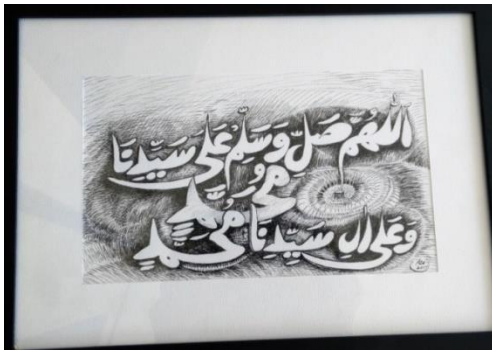 اَللّٰهُمَّ صَلِّ وَسَلِّمْ عَلٰى سَيِّدِنَا
مُحَمَّدٍ
وَعَلٰى اٰلِ سَيِّدِنَا مُحَمَّدٍ